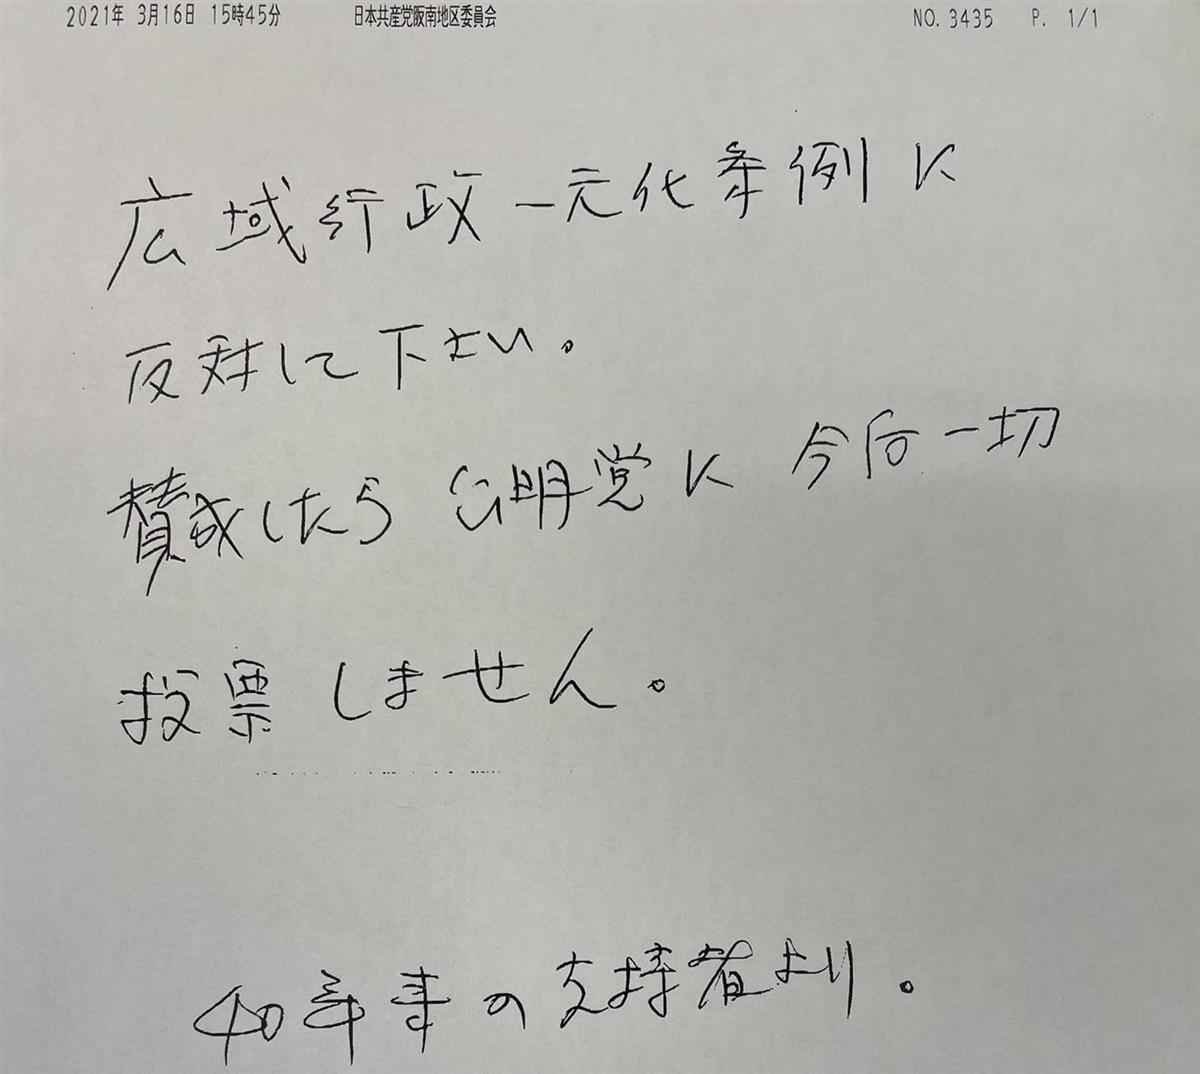 2021年 3月16日 15時45分 日本共産党阪南地区委員会 NO. 3435 P. 1/1
広域行政一元化条例に
反対して下さい。
賛成したら公明党に今后一切
投票しません。
40年来の支持者より。